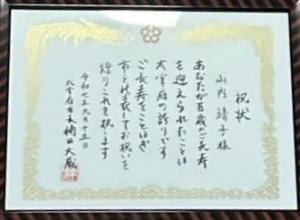 祝状
山内 靖子 様
あなたが百歳のご長寿
を迎えられたことは
太宰府の誇りです
ご長寿をことほぎ
市民を代表してお祝いを
贈りこれを祝します
令和七年九月十五日
太宰府市長 楠田大蔵